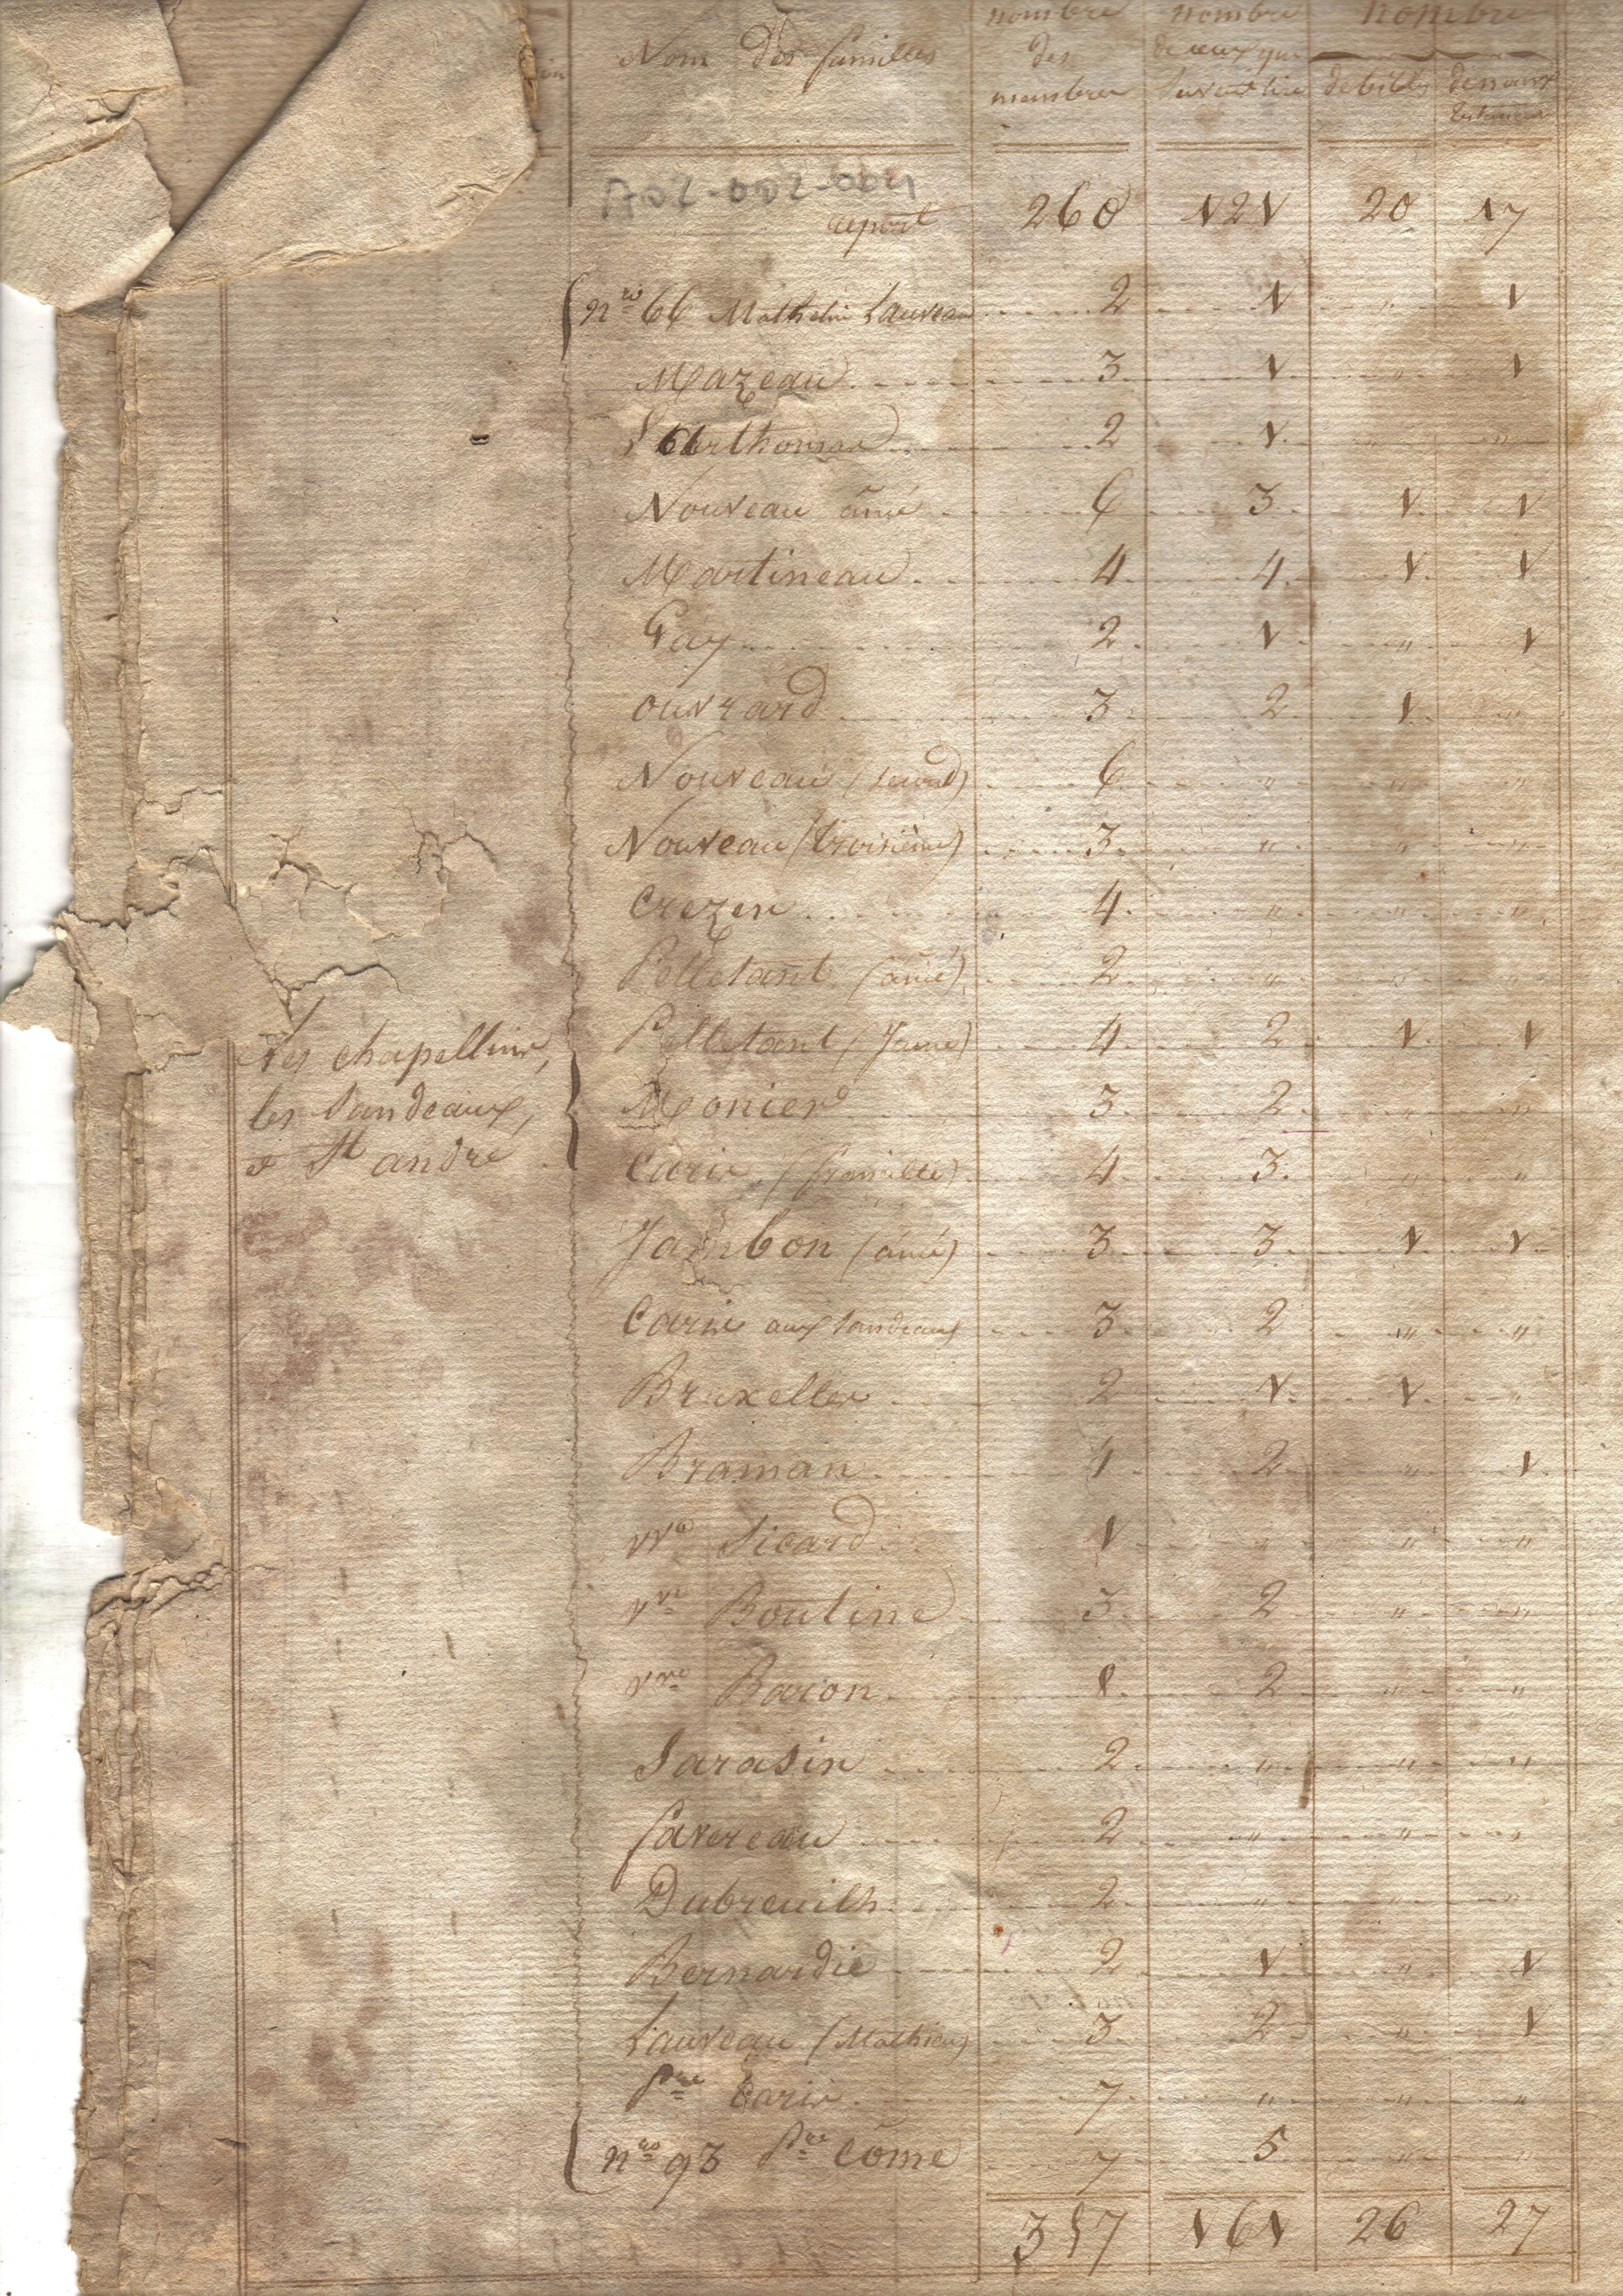 Nom des familles | nombre des membres | nombre de ceux qui savent lire | nombre de bibles | de noux testaments
AD2-002-004
report 260 121 20 17
nro 66 Mathelin Lauveau 2 1 " 1
Mazeau 3 1 " 1
2 1 "
Nouveau ainé 6 3 1 1
Martineau 4 4 1 1
Gay 2 1 " 1
ouvrard 3 2 1 "
Nouveau (second) 6 " " "
Nouveau (troisième) 3 " " "
Crezen 4 " " "
Pelletant (ainé) 2 " " "
Pelletant (Jeune) 4 2 1 1
Les chapellins,
les Landeaux,
& St andré
Monier 3 2 " "
Carin (famille) 4 3 " "
Jambon (ainé) 3 3 1 1
Carin aux landeaux 3 2 " "
Bruxelles 2 1 1 "
Braman 1 2 " 1
vve Sicard 1 " " "
vve Boutine 3 2 " "
vve Baron 8 2 " "
Sarasin 2 " " "
favereau 2 " " "
Dubreuilh 2 " " "
Bernardie 2 1 " 1
Lauveau (Mathieu) 3 2 " 1
Pre Carin 7 " " "
nro 93 Pre Côme 7 5 " "
357 161 26 27